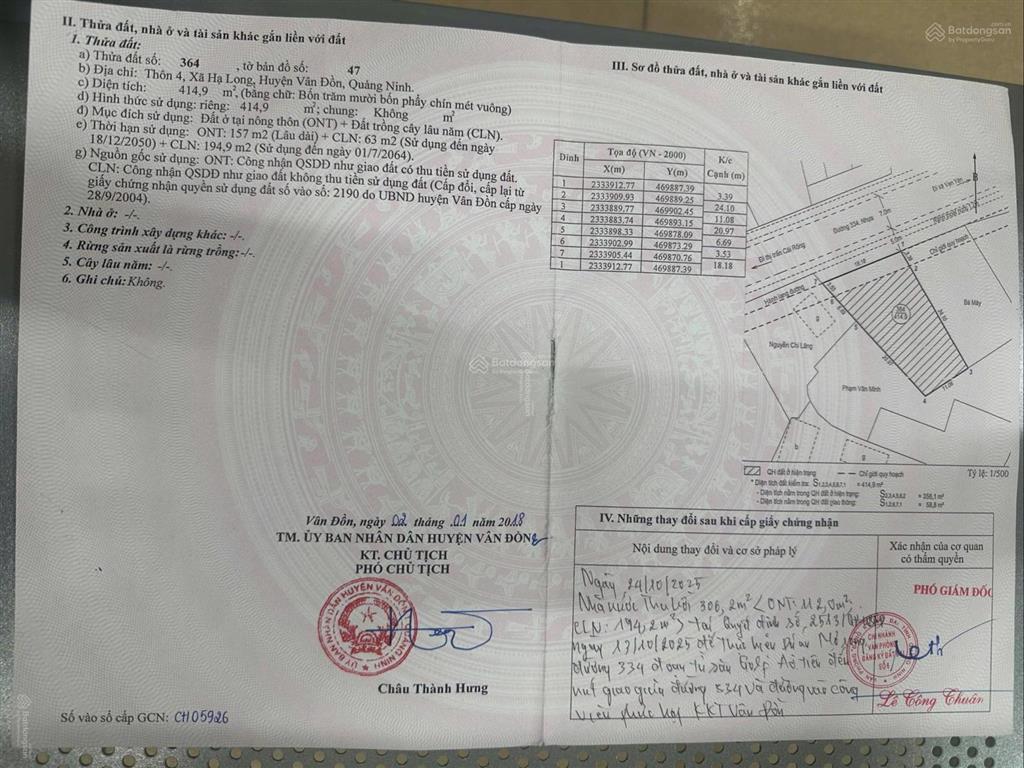 II. Thửa đất, nhà ở và tài sản khác gắn liền với đất
1. Thửa đất:
a) Thửa đất số: 364 , tờ bản đồ số: 47
b) Địa chỉ: Thôn 4, Xã Hạ Long, Huyện Vân Đồn, Quảng Ninh.
c) Diện tích: 414,9 m², (bằng chữ: Bốn trăm mười bốn phẩy chín mét vuông)
d) Hình thức sử dụng: riêng: 414,9 m²; chung: Không m²
đ) Mục đích sử dụng: Đất ở tại nông thôn (ONT) + Đất trồng cây lâu năm (CLN).
e) Thời hạn sử dụng: ONT: 157 m2 (Lâu dài) + CLN: 63 m2 (Sử dụng đến ngày
18/12/2050) + CLN: 194,9 m2 (Sử dụng đến ngày 01/7/2064).
g) Nguồn gốc sử dụng: ONT: Công nhận QSDĐ như giao đất có thu tiền sử dụng đất.
CLN: Công nhận QSDĐ như giao đất không thu tiền sử dụng đất (Cấp đổi, cấp lại từ
giấy chứng nhận quyền sử dụng đất số vào sổ: 2190 do UBND huyện Vân Đồn cấp ngày
28/9/2004).
2. Nhà ở: -/-.
3. Công trình xây dựng khác: -/-.
4. Rừng sản xuất là rừng trồng: -/-.
5. Cây lâu năm: -/-.
6. Ghi chú: Không.
Vân Đồn, ngày 02 tháng 01 năm 2018
TM. ỦY BAN NHÂN DÂN HUYỆN VÂN ĐỒN
KT. CHỦ TỊCH
PHÓ CHỦ TỊCH
Châu Thành Hưng
Số vào sổ cấp GCN: CH05926
Batdongsan
by PropertyGuru
III. Sơ đồ thửa đất, nhà ở và tài sản khác gắn liền với đất
Đỉnh Tọa độ (VN - 2000) K/c
X(m) Y(m) Cạnh (m)
1 2333912.77 469887.39
3.39
2 2333909.93 469889.25
24.10
3 2333889.77 469902.45
11.08
4 2333883.74 469893.15
20.97
5 2333898.33 469878.09
6.69
6 2333902.99 469873.29
3.53
7 2333905.44 469870.76
18.18
1 2333912.77 469887.39
B
Đi xã Vạn Yên
Đường 334, Nhựa
7.0m
Đi thị trấn Cái Rồng
Chỉ giới quy hoạch
Hành lang đường
18.18
364
414.9
24.10
11.08
Bà Mây
Nguyễn Chí Lăng
Phạm Văn Minh
QH đất ở hiện trạng Chỉ giới quy hoạch Tỷ lệ: 1/500
* Diện tích đất kiểm tra: S1,2,3,4,5,6,7,1 = 414,9 m²
- Diện tích nằm trong QH đất ở hiện trạng: S2,3,4,5,6,2 = 356,1 m²
- Diện tích nằm trong QH đất giao thông: S1,2,6,7,1 = 58,8 m²
IV. Những thay đổi sau khi cấp giấy chứng nhận
Nội dung thay đổi và cơ sở pháp lý
Xác nhận của cơ quan
có thẩm quyền
Ngày 24/10/2025
Nhà nước thu hồi 306,2m² (ONT: 112,0m²,
CLN: 194,2m²) tại quyết định số 2513/
ngày 17/10/2025 để thực hiện dự án Mở rộng
đường 334 đoạn từ sân Golf Ao Tiên đến
nút giao giữa đường 334 và đường vào công
viên phức hợp KKT Vân Đồn
PHÓ GIÁM ĐỐC
CHI NHÁNH
VĂN PHÒNG
ĐĂNG KÝ ĐẤT
Lê Công Thuân